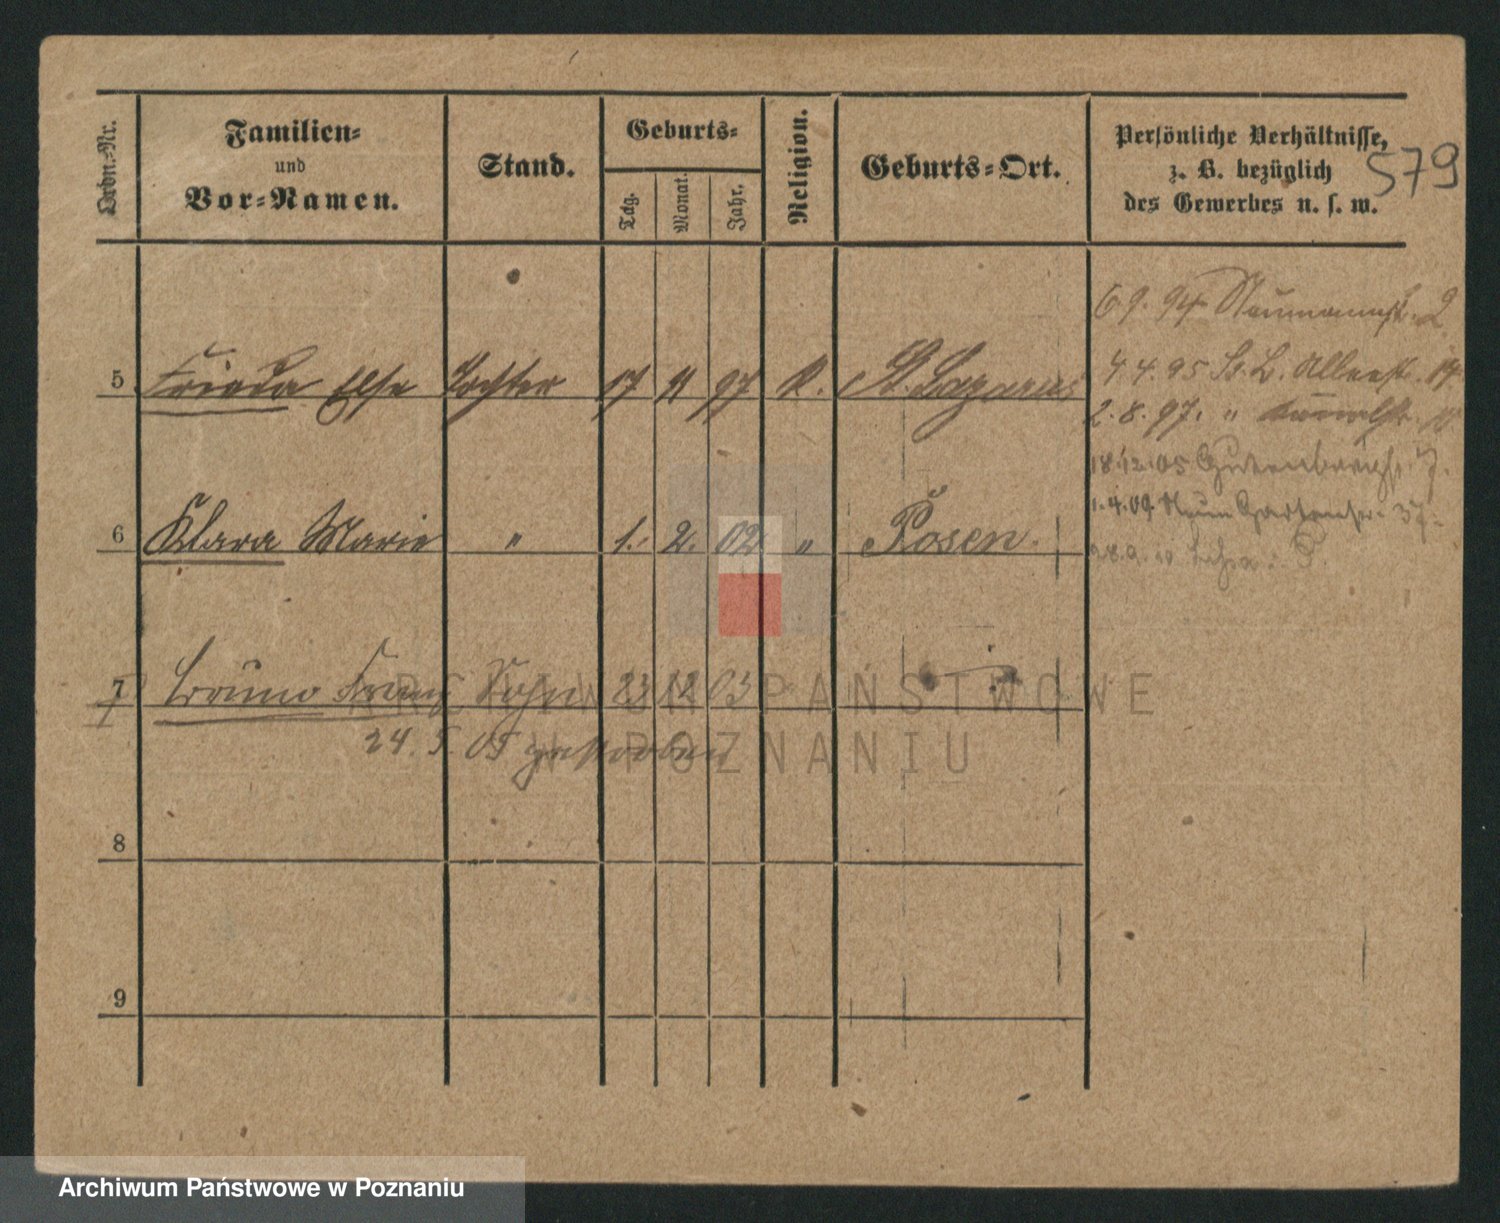 Ordn.-Nr.
Familien-
und
Vor-Namen.
Stand.
Geburts-
Tag.
Monat.
Jahr.
Religion.
Geburts-Ort.
Persönliche Verhältnisse,
z. B. bezüglich
des Gewerbes u. s. w.
579
6 9. 94 Naumannstr. 2
4 4. 95 St. L. Alleestr.
5 Frieda Else Tochter 17 11 97 K. St. Lazarus
2. 8. 97. "
18.12.05 Gutenbergstr. 7.
1. 4. 09 Neue Gartenstr. 37.
6 Klara Marie " 1. 2. 02 " Posen.
28.9.
7 Bruno Franz Sohn 23 12 03
24. 5. 05 gestorben
8
9
ARCHIWUM PAŃSTWOWE
W POZNANIU
Archiwum Państwowe w Poznaniu